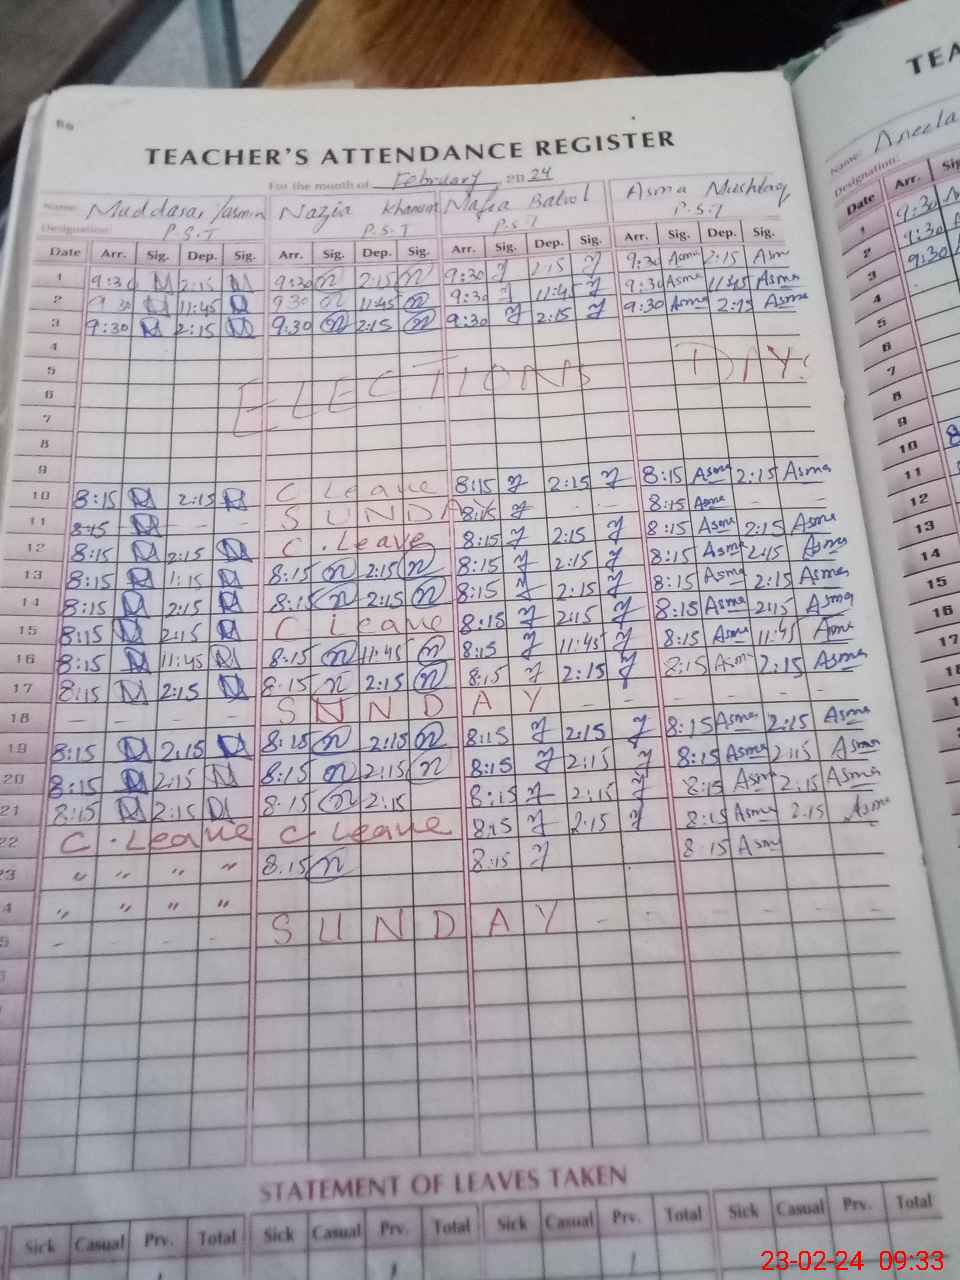 TEACHER'S ATTENDANCE REGISTER
For the month of February, 2024
Name: Muddasar Yasmin Nazia Khanum Mafia Batool Asma Mushtaq
Designation: P.S.T P.S.T P.S.T P.S.T
Date Arr. Sig. Dep. Sig. Arr. Sig. Dep. Sig. Arr. Sig. Dep. Sig. Arr. Sig. Dep. Sig.
1 9:30 M 2:15 M 9:30 n 2:15 n 9:30 2:15 9:30 Asma 2:15 Asm
2 9 30 M 11:45 M 9 30 n 11:45 n 9:30 11:45 9:30 Asma 11:45 Asma
3 9:30 M 2:15 M 9:30 n 2:15 n 9:30 2:15 9:30 Asma 2:15 Asma
4
5
6 ELECTIONS DAY
7
8
9
10 8:15 M 2:15 M C Leave 8:15 2:15 8:15 Asma 2:15 Asma
11 8:15 M - - SUNDAY 8:15 8:15 Asma - -
12 8:15 M 2:15 M C. Leave 8:15 2:15 8:15 Asma 2:15 Asma
13 8:15 M 1:15 M 8:15 n 2:15 n 8:15 2:15 8:15 Asma 2:15 Asma
14 8:15 M 2:15 M 8:15 n 2:15 n 8:15 2:15 8:15 Asma 2:15 Asma
15 8:15 M 2:15 M C Leave 8:15 2:15 8:15 Asma 2:15 Asma
16 8:15 M 11:45 M 8:15 n 11:45 n 8:15 11:45 8:15 Asma 11:45 Asma
17 8:15 M 2:15 M 8:15 n 2:15 n 8:15 2:15 8:15 Asma 2:15 Asma
18 - - - - SUNDAY - - - - - -
19 8:15 M 2:15 M 8:15 n 2:15 n 8:15 2:15 8:15 Asma 2:15 Asma
20 8:15 M 2:15 M 8:15 n 2:15 n 8:15 2:15 8:15 Asma 2:15 Asma
21 8:15 M 2:15 M 8:15 n 2:15 8:15 2:15 8:15 Asma 2:15 Asma
22 C. Leave C. Leave 8:15 2:15 8:15 Asma 2:15 Asma
23 " " " " 8:15 n 8:15 8:15 Asma
4 " " " "
5 - - - - SUNDAY - - - - - -
STATEMENT OF LEAVES TAKEN
Sick Casual Prv. Total Sick Casual Prv. Total Sick Casual Prv. Total Sick Casual Prv. Total
TEA
Name: Aneela
Designation:
Date Arr. Sig
1 9:30
2 9:30
3 9:30
4
5
6
7
8
9
10
11
12
13
14
15
16
17
18
23-02-24 09:33